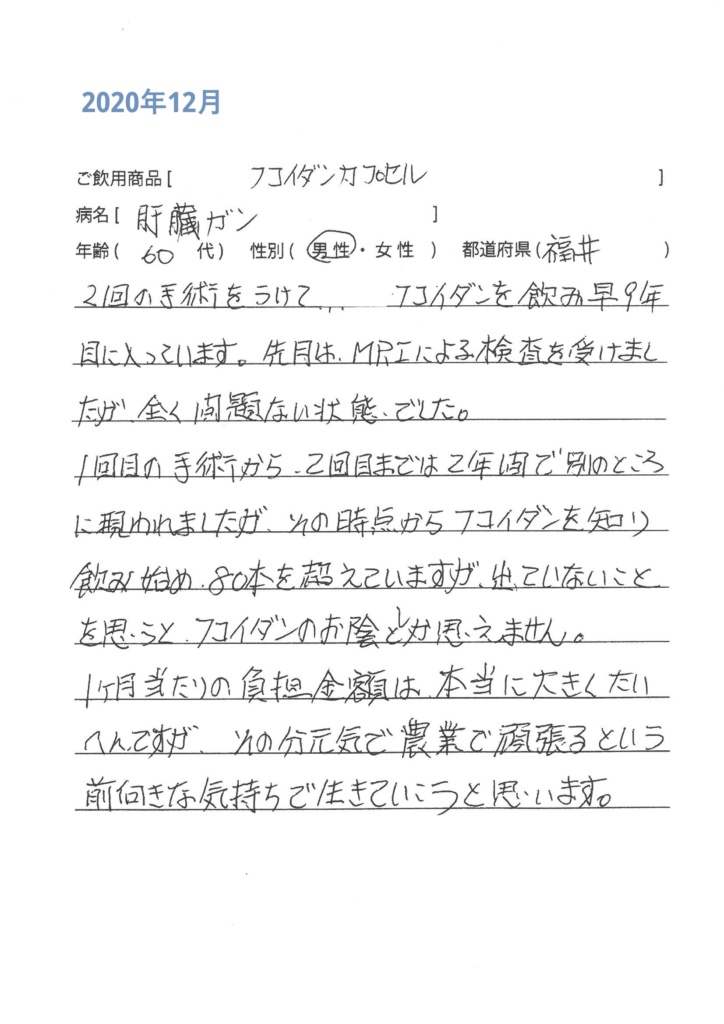 2020年12月
ご飲用商品[ フコイダンカプセル ]
病名[ 肝臓ガン ]
年齢( 60 代) 性別( 男性・女性 ) 都道府県(福井 )
2回の手術をうけて... フコイダンを飲み早9年
目に入っています。先月は、MRIによる検査を受けまし
たが、全く問題ない状態、でした。
1回目の手術から、2回目までは2年間で別のところ
に現われましたが、その時点からフコイダンを知り
飲み始め、80本を超えていますが、出ていないこと
を思うと、フコイダンのお陰としか思えません。
1ヶ月当たりの負担金額は、本当に大きくたい
へんですが、その分元気で農業で頑張るという
前向きな気持ちで生きていこうと思います。